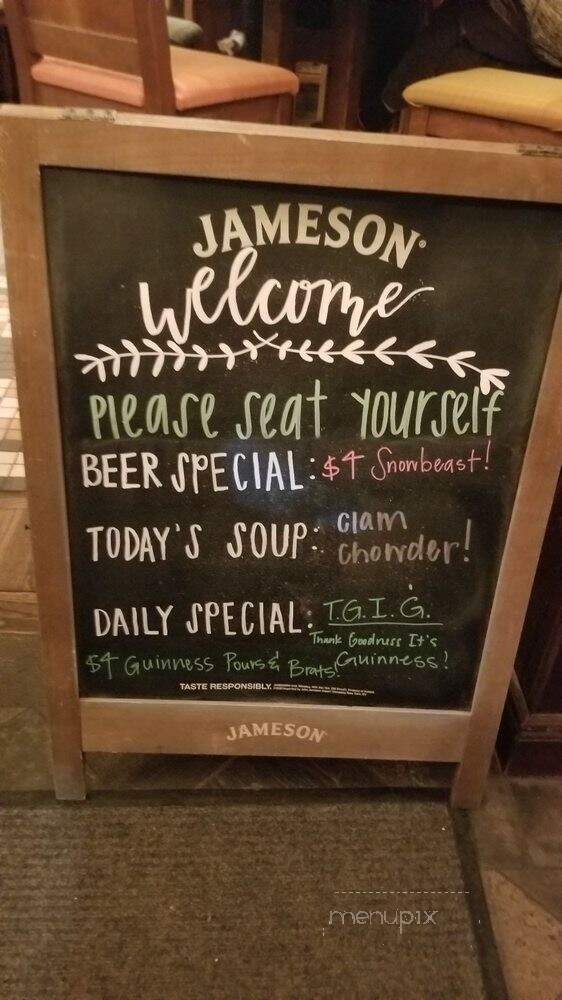 JAMESON®
welcome
Please seat yourself
BEER SPECIAL: $4 Snowbeast!
TODAY'S SOUP: clam
chowder!
DAILY SPECIAL: T.G.I.G.
Thank Goodness It's
Guinness!
$4 Guinness Pours & Brats!
TASTE RESPONSIBLY.
JAMESON
menupix